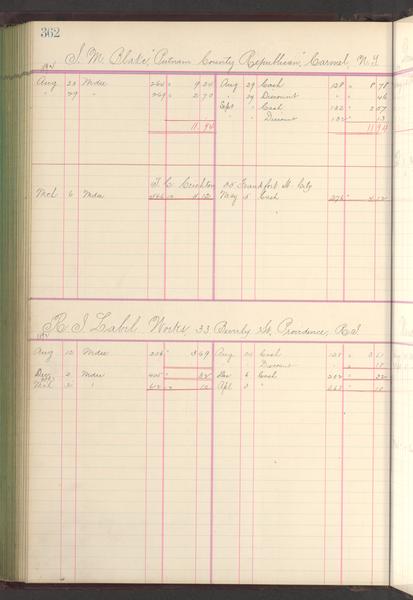 362
J. M. Blake, "Putnam County Republican," Carmel, N.Y.
Aug 23 Mdse 264 " 9 24 Aug 29 Cash 128 " 8 78
" 29 " 269 " 2 70 " 29 Discount " " 46
Sept " Cash 132 " 2 57
" " Discount 132 " 13
11.94 11 94
J. C. Creighton 55 Frankfort St. City
Mch 6 Mdse 4 12 May 5 Cash 276 " 4 12
R. I. Label Works, 33 Beverly St, Providence, R.I.
Aug 12 Mdse 256 " 3 69 Aug 30 Cash 128 " 3 51
Discount " 18
Dec 2 Mdse 405 " 32 Dec 6 Cash 202 " 32
Mch 3 " 62 " 10 Apl 3 " 263 " 10